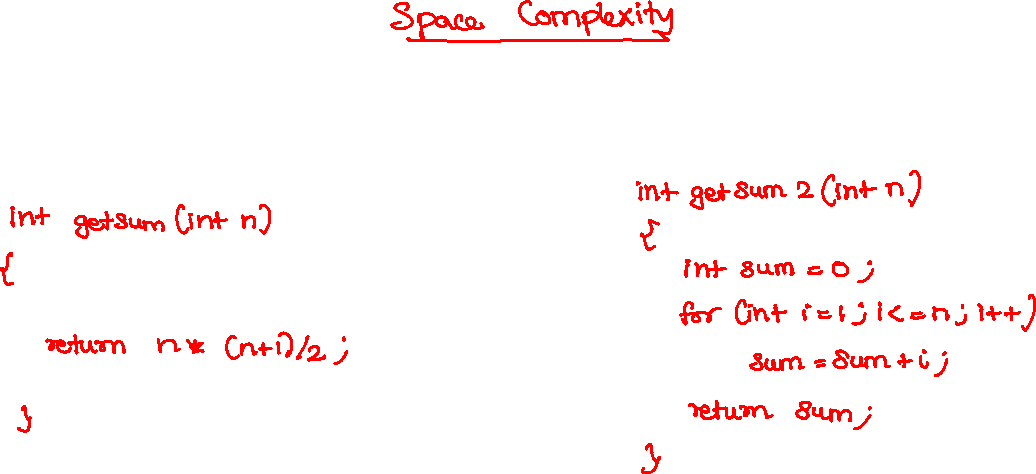 Space Complexity
int getsum (int n)
{
return n * (n+1)/2 ;
}
int getsum 2 (int n)
{
int sum = 0 ;
for (int i=1 ; i<=n ; i++)
sum = sum + i ;
return sum ;
}